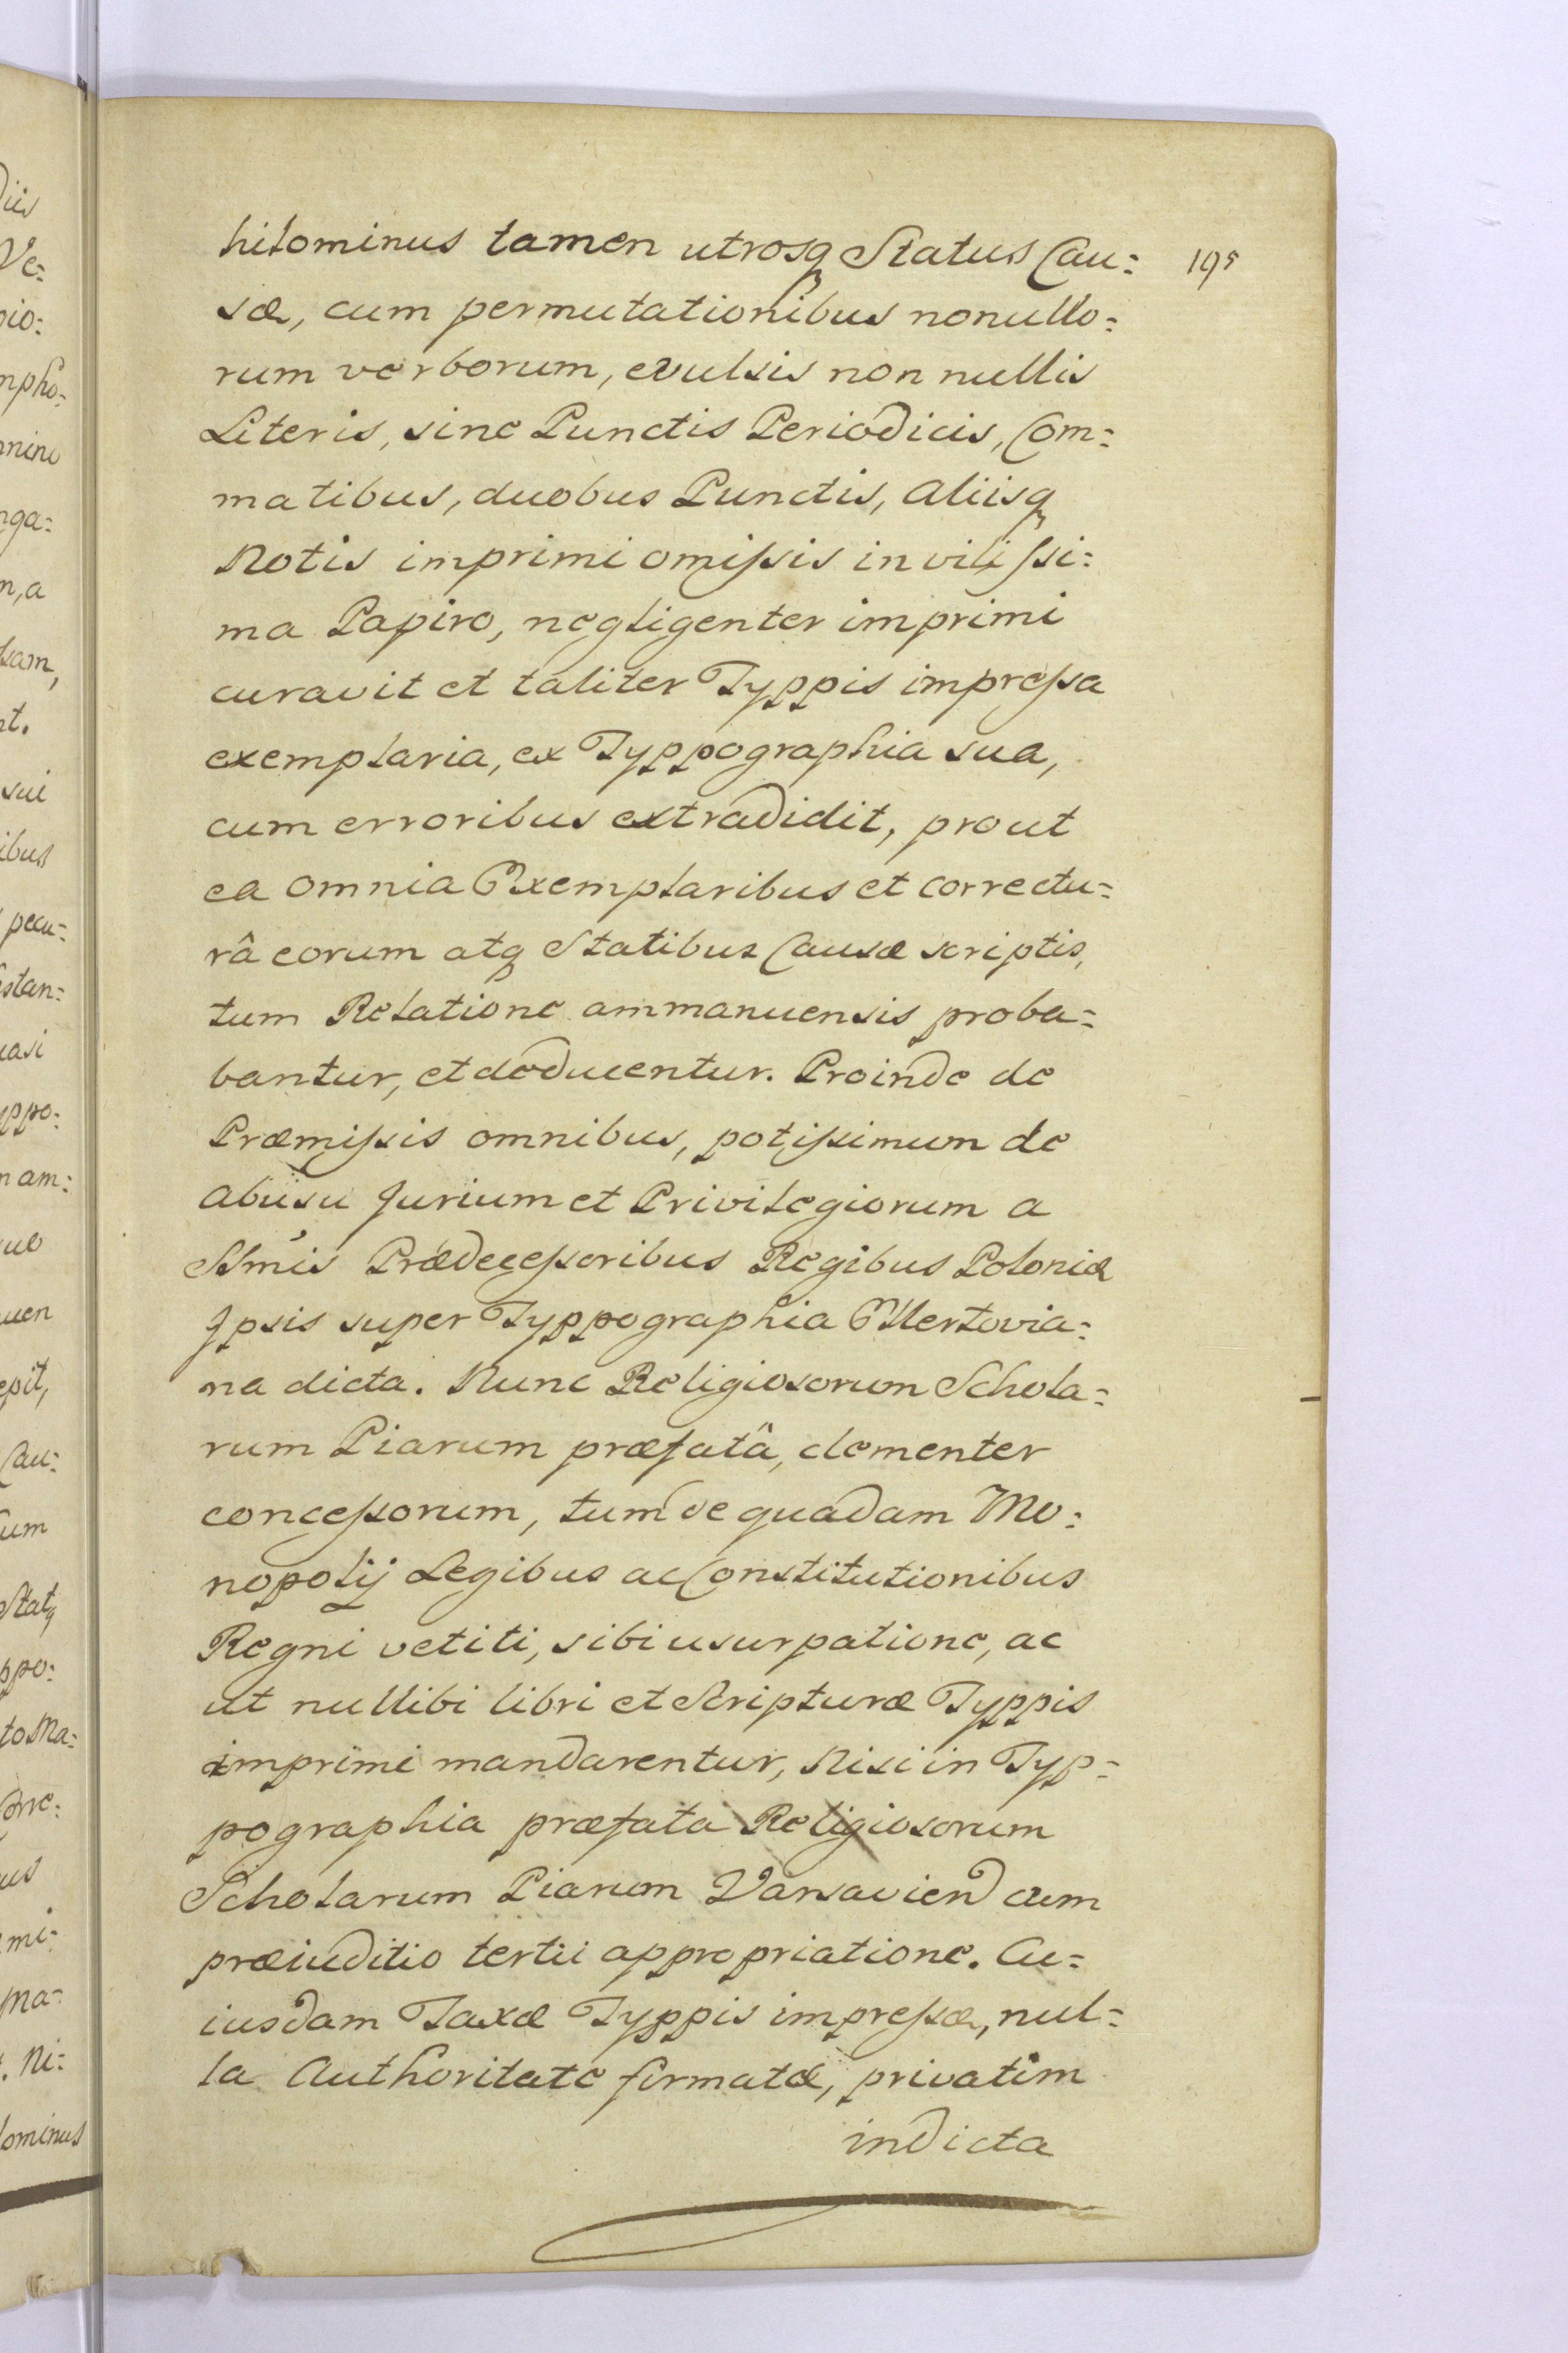 hilominus tamen utrosq Status Cau: 195
sæ, cum permutationibus nonullo:
rum verborum, evulsis non nullis
Literis, sine Punctis Periodicis, Com:
matibus, duobus Punctis, aliisq
Notis imprimi omissis in vilissi:
ma Papiro, negligenter imprimi
curavit et taliter Typpis impressa
exemplaria, ex Typpographia sua,
cum erroribus extradidit, prout
ea omnia Exemplaribus et correctu:
râ eorum atq Statibus Causæ scriptis,
tum Relatione ammanuensis proba:
bantur, et deducentur. Proinde de
Præmissis omnibus, potissimum de
abusu Jurium et Privilegiorum a
Slmis Prædecessoribus Regibus Poloniæ
Ipsis super Typpographia
na dicta. Nunc Religiosorum Schola:
rum Piarum præfatâ, clementer
concessorum, tum de quadam Mo:
nopolij Legibus ac Constitutionibus
Regni vetiti, sibi usurpatione, ac
ut nullibi libri et Scripturæ Typpis
imprimi mandarentur, Nisi in Typ:
pographia præfata Religiosorum
Scholarum Piarum Varsavien cum
præiuditio tertii appropriatione. Cu:
iusdam Taxæ Typpis impressæ, nul:
la Authoritate firmatæ, privatim
indicta